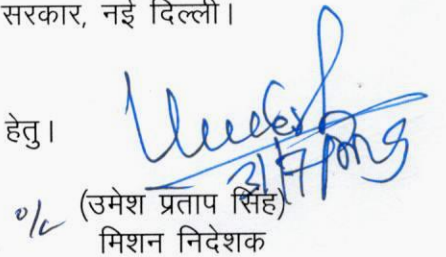 सरकार, नई दिल्ली।
हेतु।
o/c (उमेश प्रताप सिंह)
मिशन निदेशक